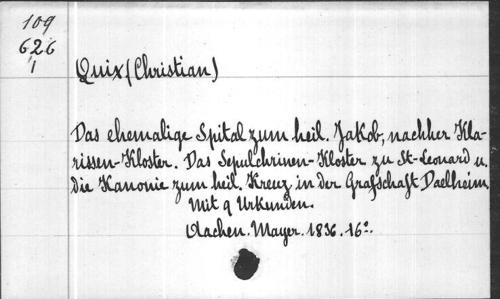 109
626
1
Quix (Christian)
Das ehemalige Spital zum heil. Jakob, nachher Kla-
rissen-Kloster. Das Sepulchrinen-Kloster zu St-Leonard u.
die Kanonie zum heil. Kreuz in der Grafschaft Daelheim.
Mit 9 Urkunden.
Aachen. Mayer. 1836. 16°.